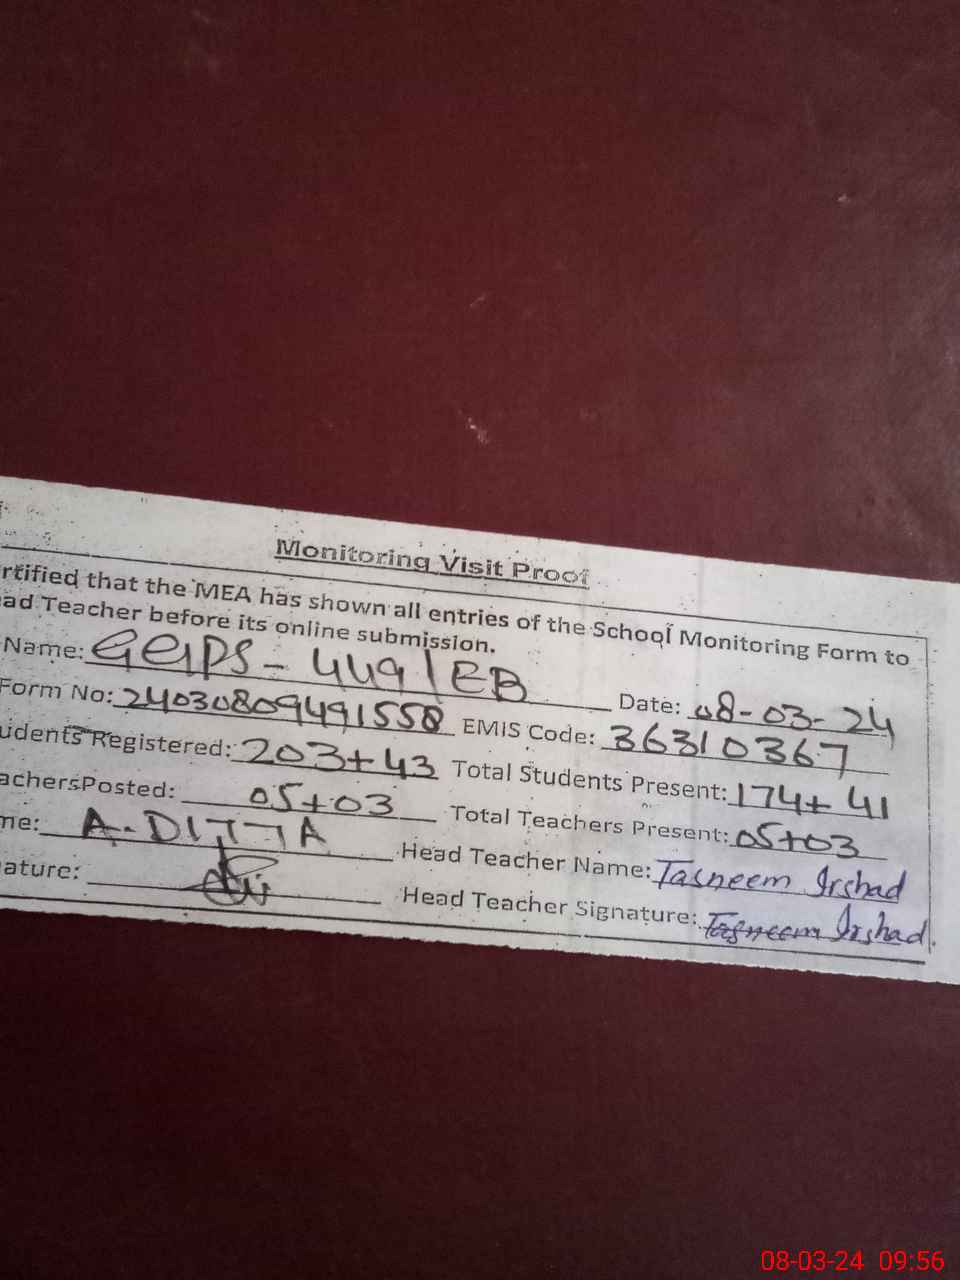 Monitoring Visit Proof
rtified that the MEA has shown all entries of the School Monitoring Form to
ad Teacher before its online submission.
Name: GGPS - 449/EB Date: 08-03-24
Form No: 24030809491558 EMIS Code: 36310367
udents Registered: 203+43 Total Students Present: 174+41
achersPosted: 05+03 Total Teachers Present: 05+03
me: A.DITTA Head Teacher Name: Tasneem Irshad
ature: Head Teacher Signature: Tasneem Irshad.
08-03-24 09:56